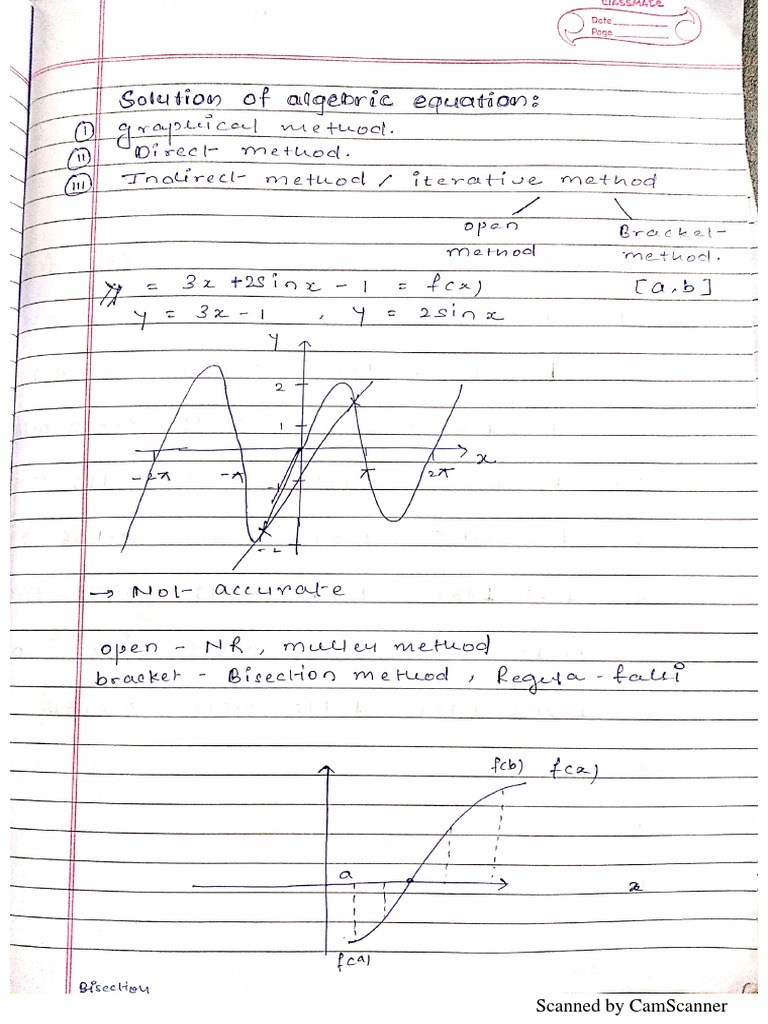 classmate
Date
Page
Solution of algebric equation:
(I) graphical method.
(II) Direct method.
(III) Indirect method / iterative method
open method
Bracket method.
[a,b]
= 3x + 2sinx - 1 = f(x)
y = 3x - 1 , y = 2sinx
y
2
1
-2π -π π 2π x
-1
-2
→ Not accurate
open - NR, muller method
bracket - Bisection method, Regula - falsi
f(b) f(x)
a
x
f(a)
Bisection
Scanned by CamScanner